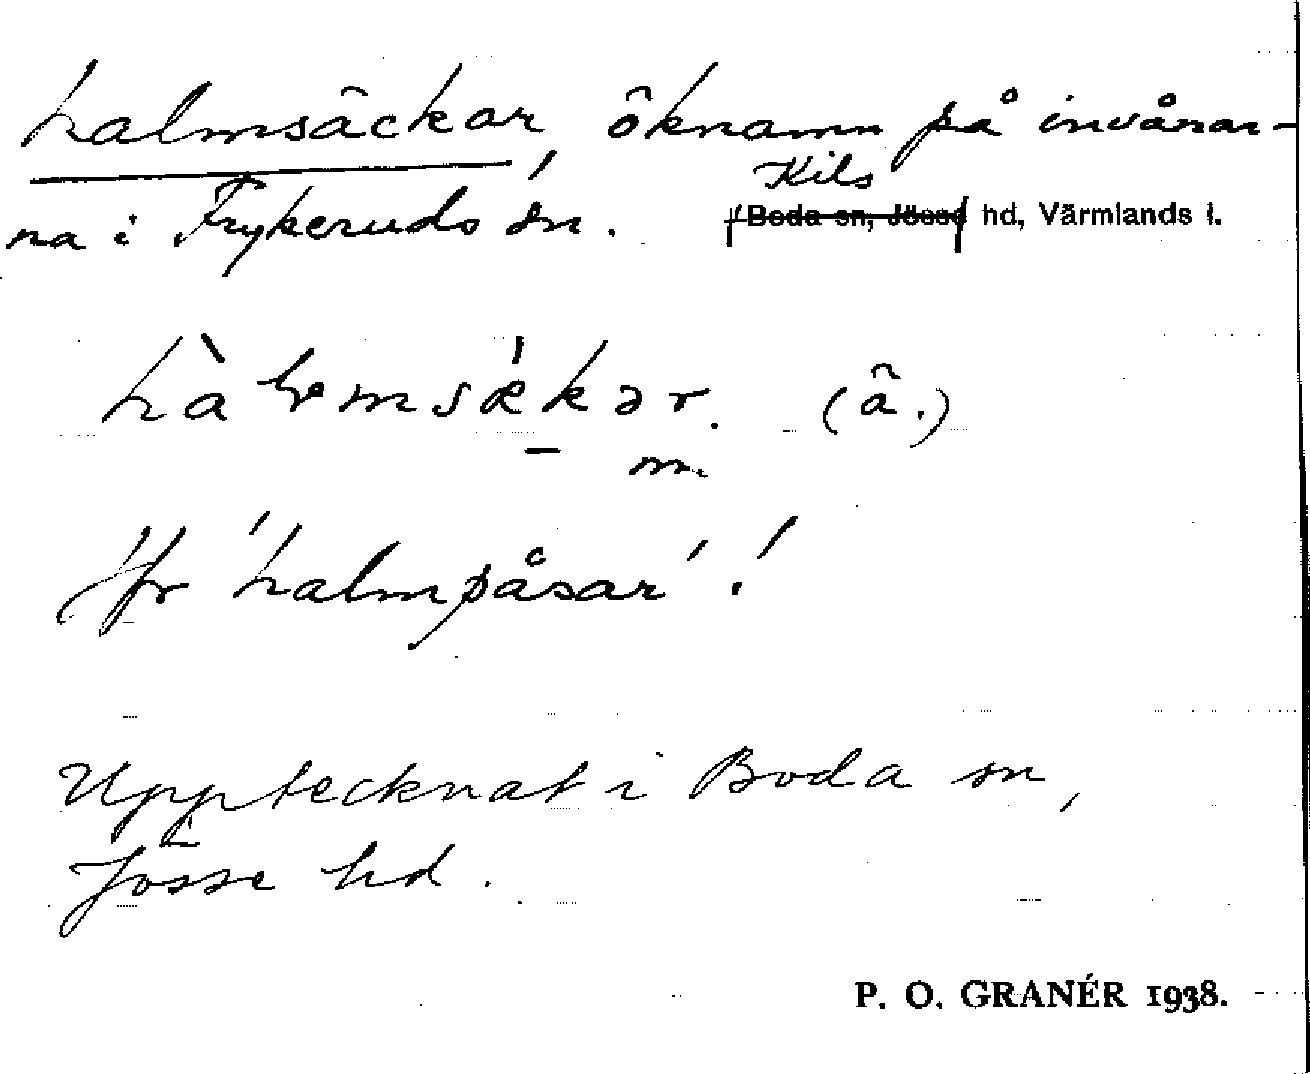 halmsäckar, öknamn på invånar-
Kils
na i Frykeruds sn. Boda sn, Jösse hd, Värmlands l.
(ä.)
m.
Jfr 'halmpåsar'!
Upptecknat i Boda sn,
Jösse hd.
P. O. GRANÉR 1938.